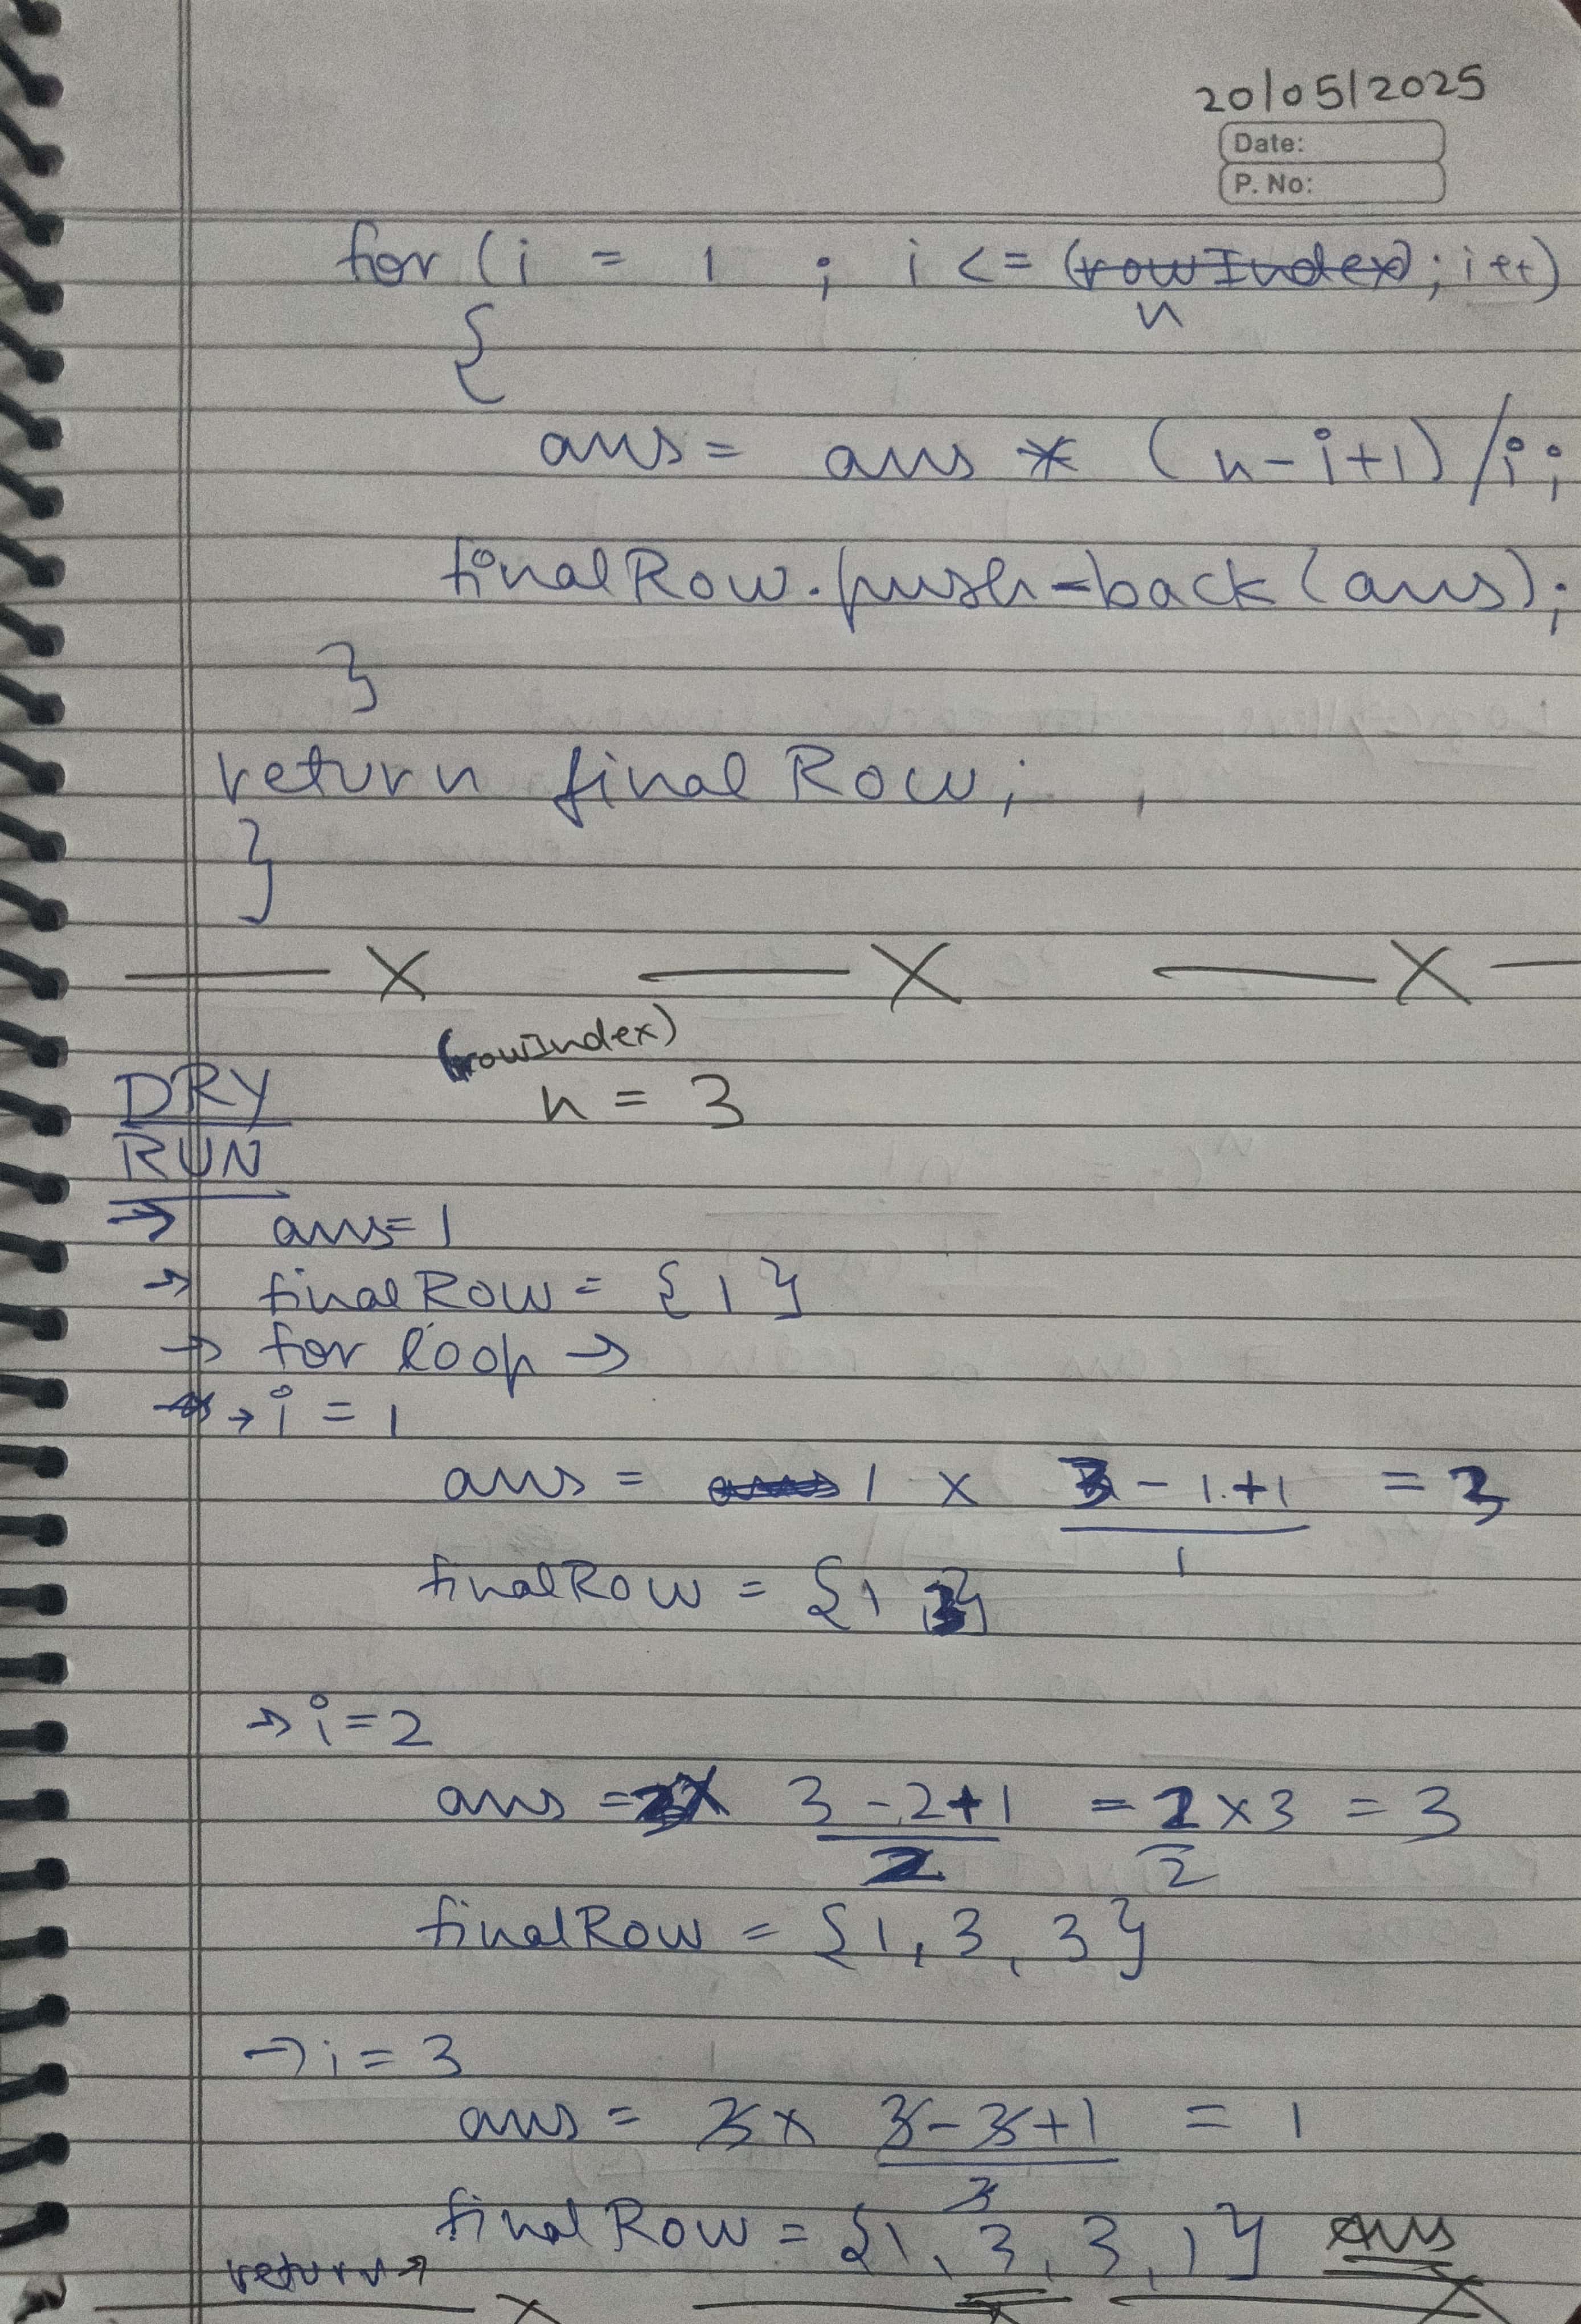 20/05/2025
Date:
P. No:
for (i = 1 ; i <= (rowIndex); i++)
n
{
ans = ans * (n-i+1) / i;
finalRow.push-back(ans);
}
return finalRow;
}
— X — X — X —
(rowIndex)
DRY n = 3
RUN
→ ans=1
→ finalRow = { 1 }
→ for loop →
→ i = 1
ans = ans 1 x 3 - 1 + 1 = 3
1
finalRow = {1, 3}
→ i=2
ans = 3 x 3 - 2 + 1 = 2 x 3 = 3
2 2
finalRow = {1, 3, 3}
→ i = 3
ans = 3 x 3 - 3 + 1 = 1
3
finalRow = {1, 3, 3, 1} ans
return →
— X — X — X